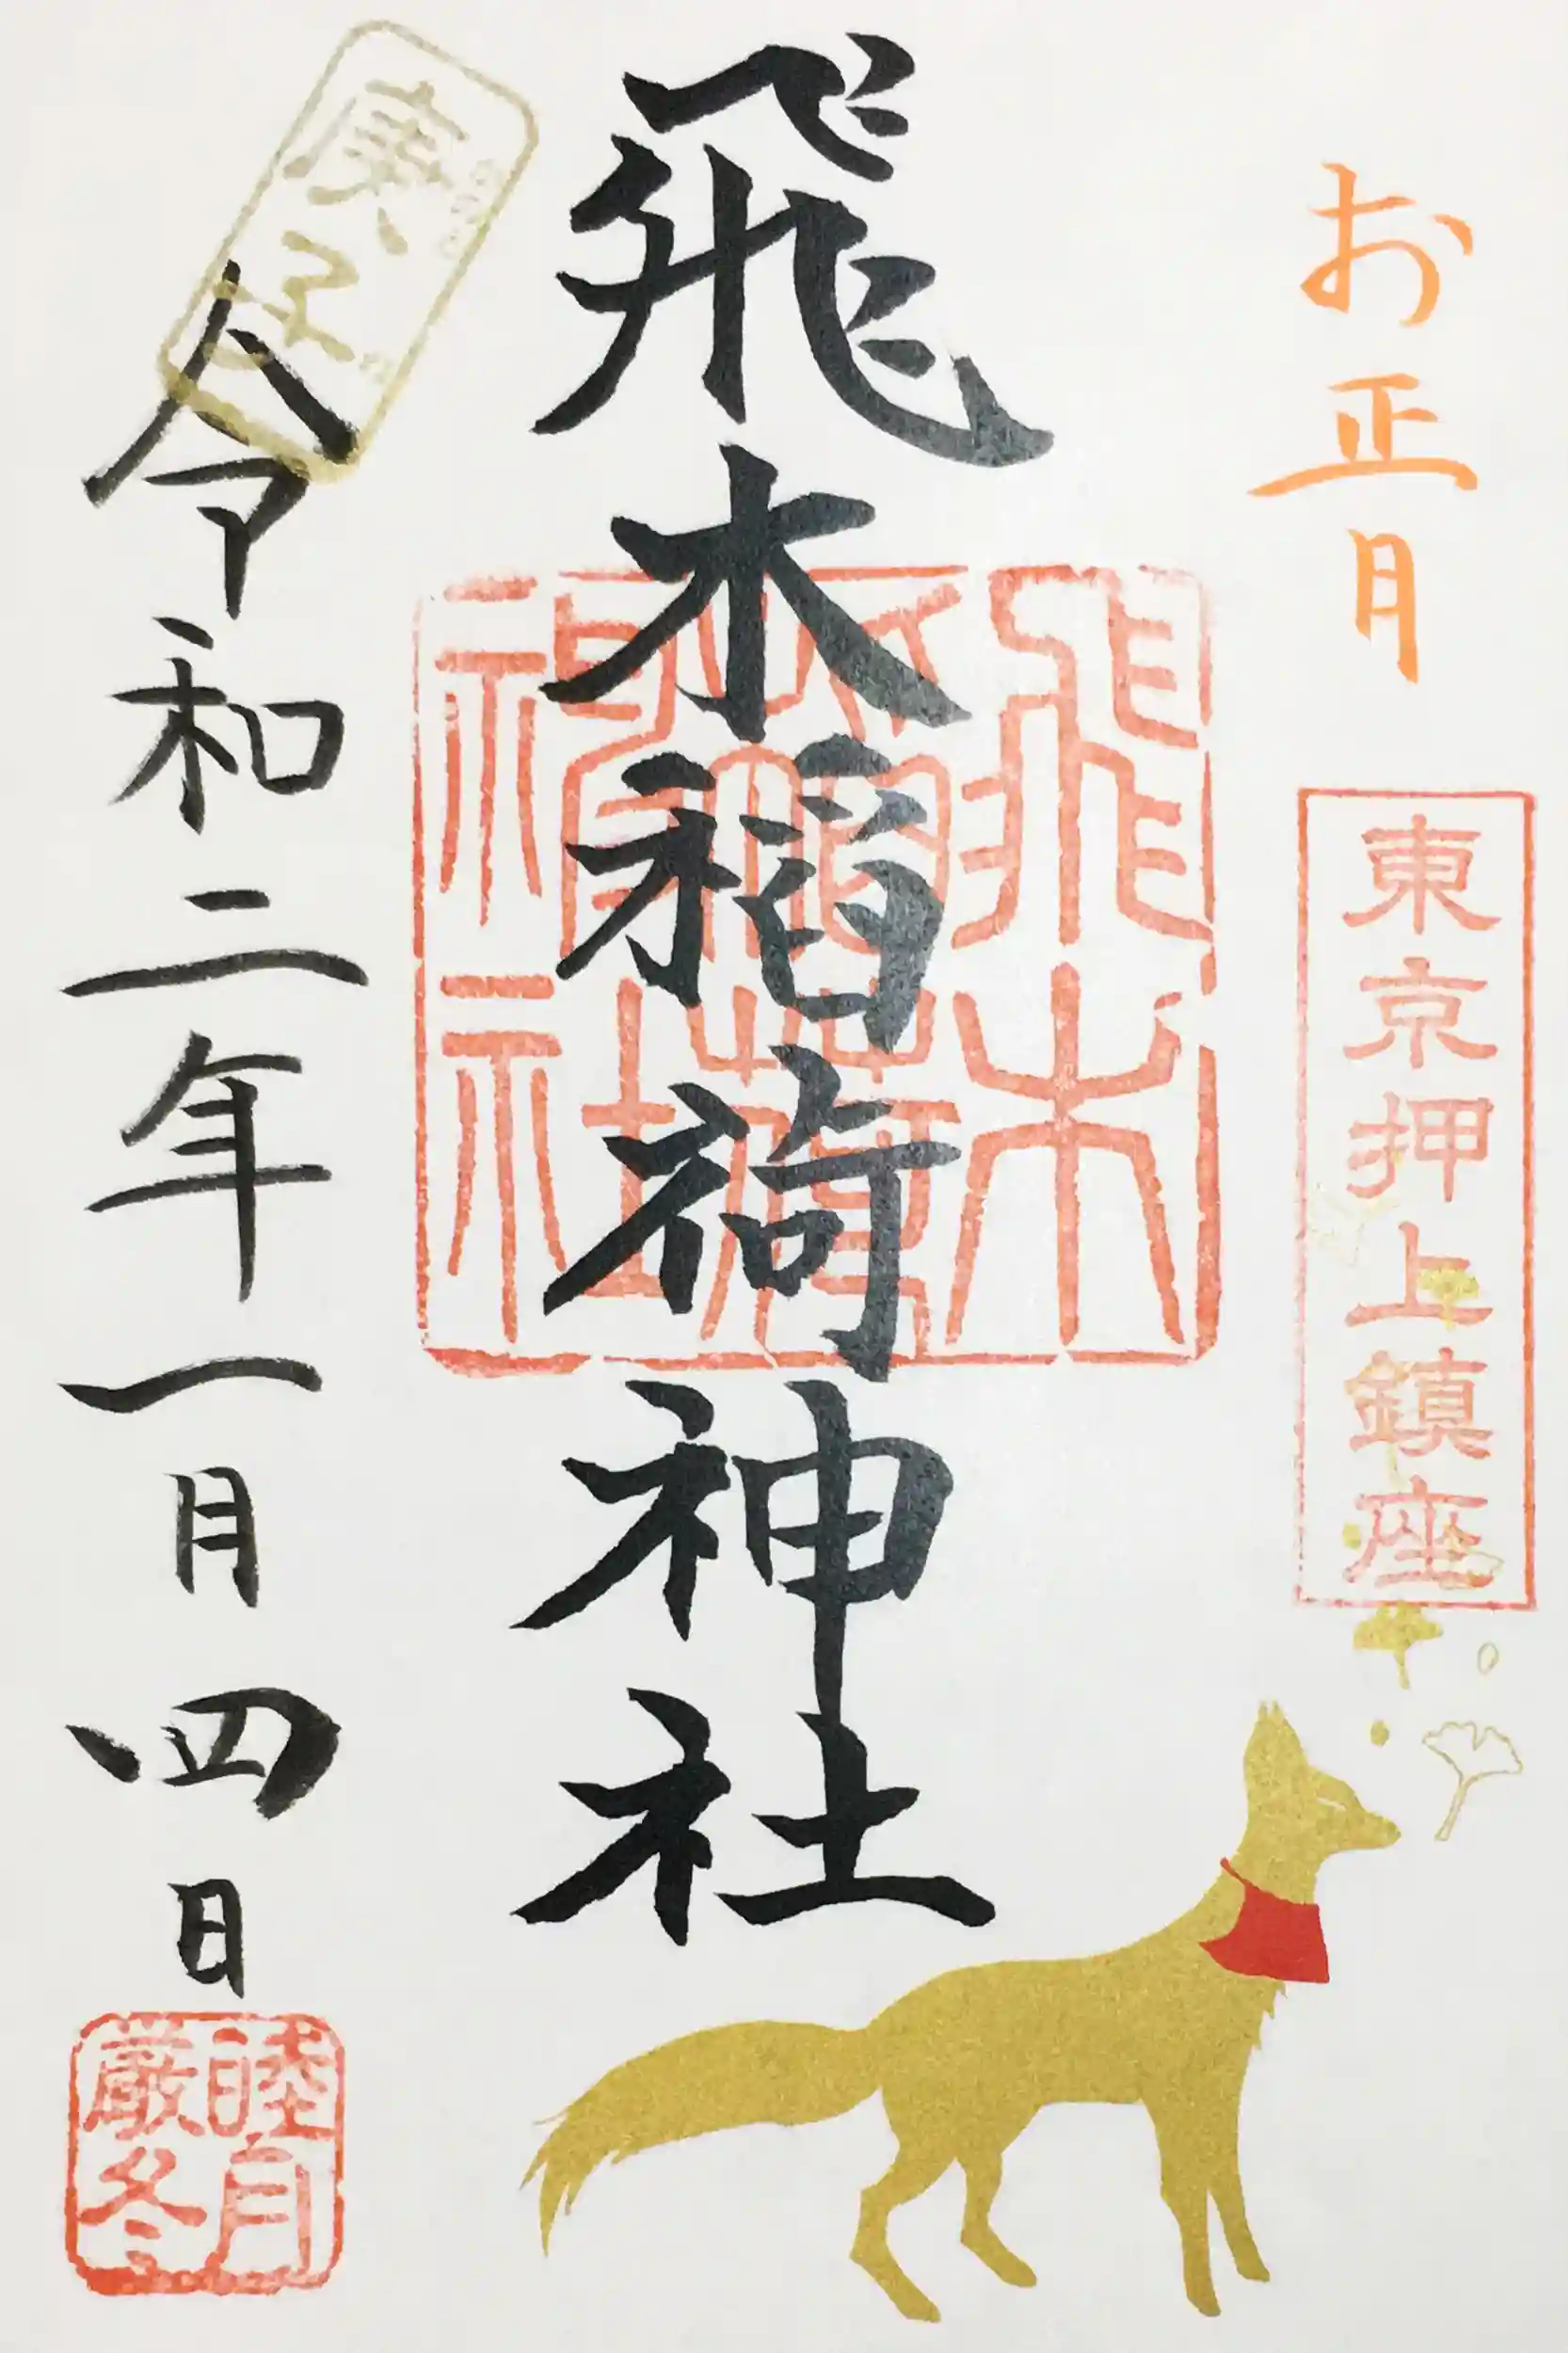 お正月
東京押上鎮座
飛木稲荷神社
飛木
稲荷
神社
庚子
令和二年一月四日
睦月
厳冬